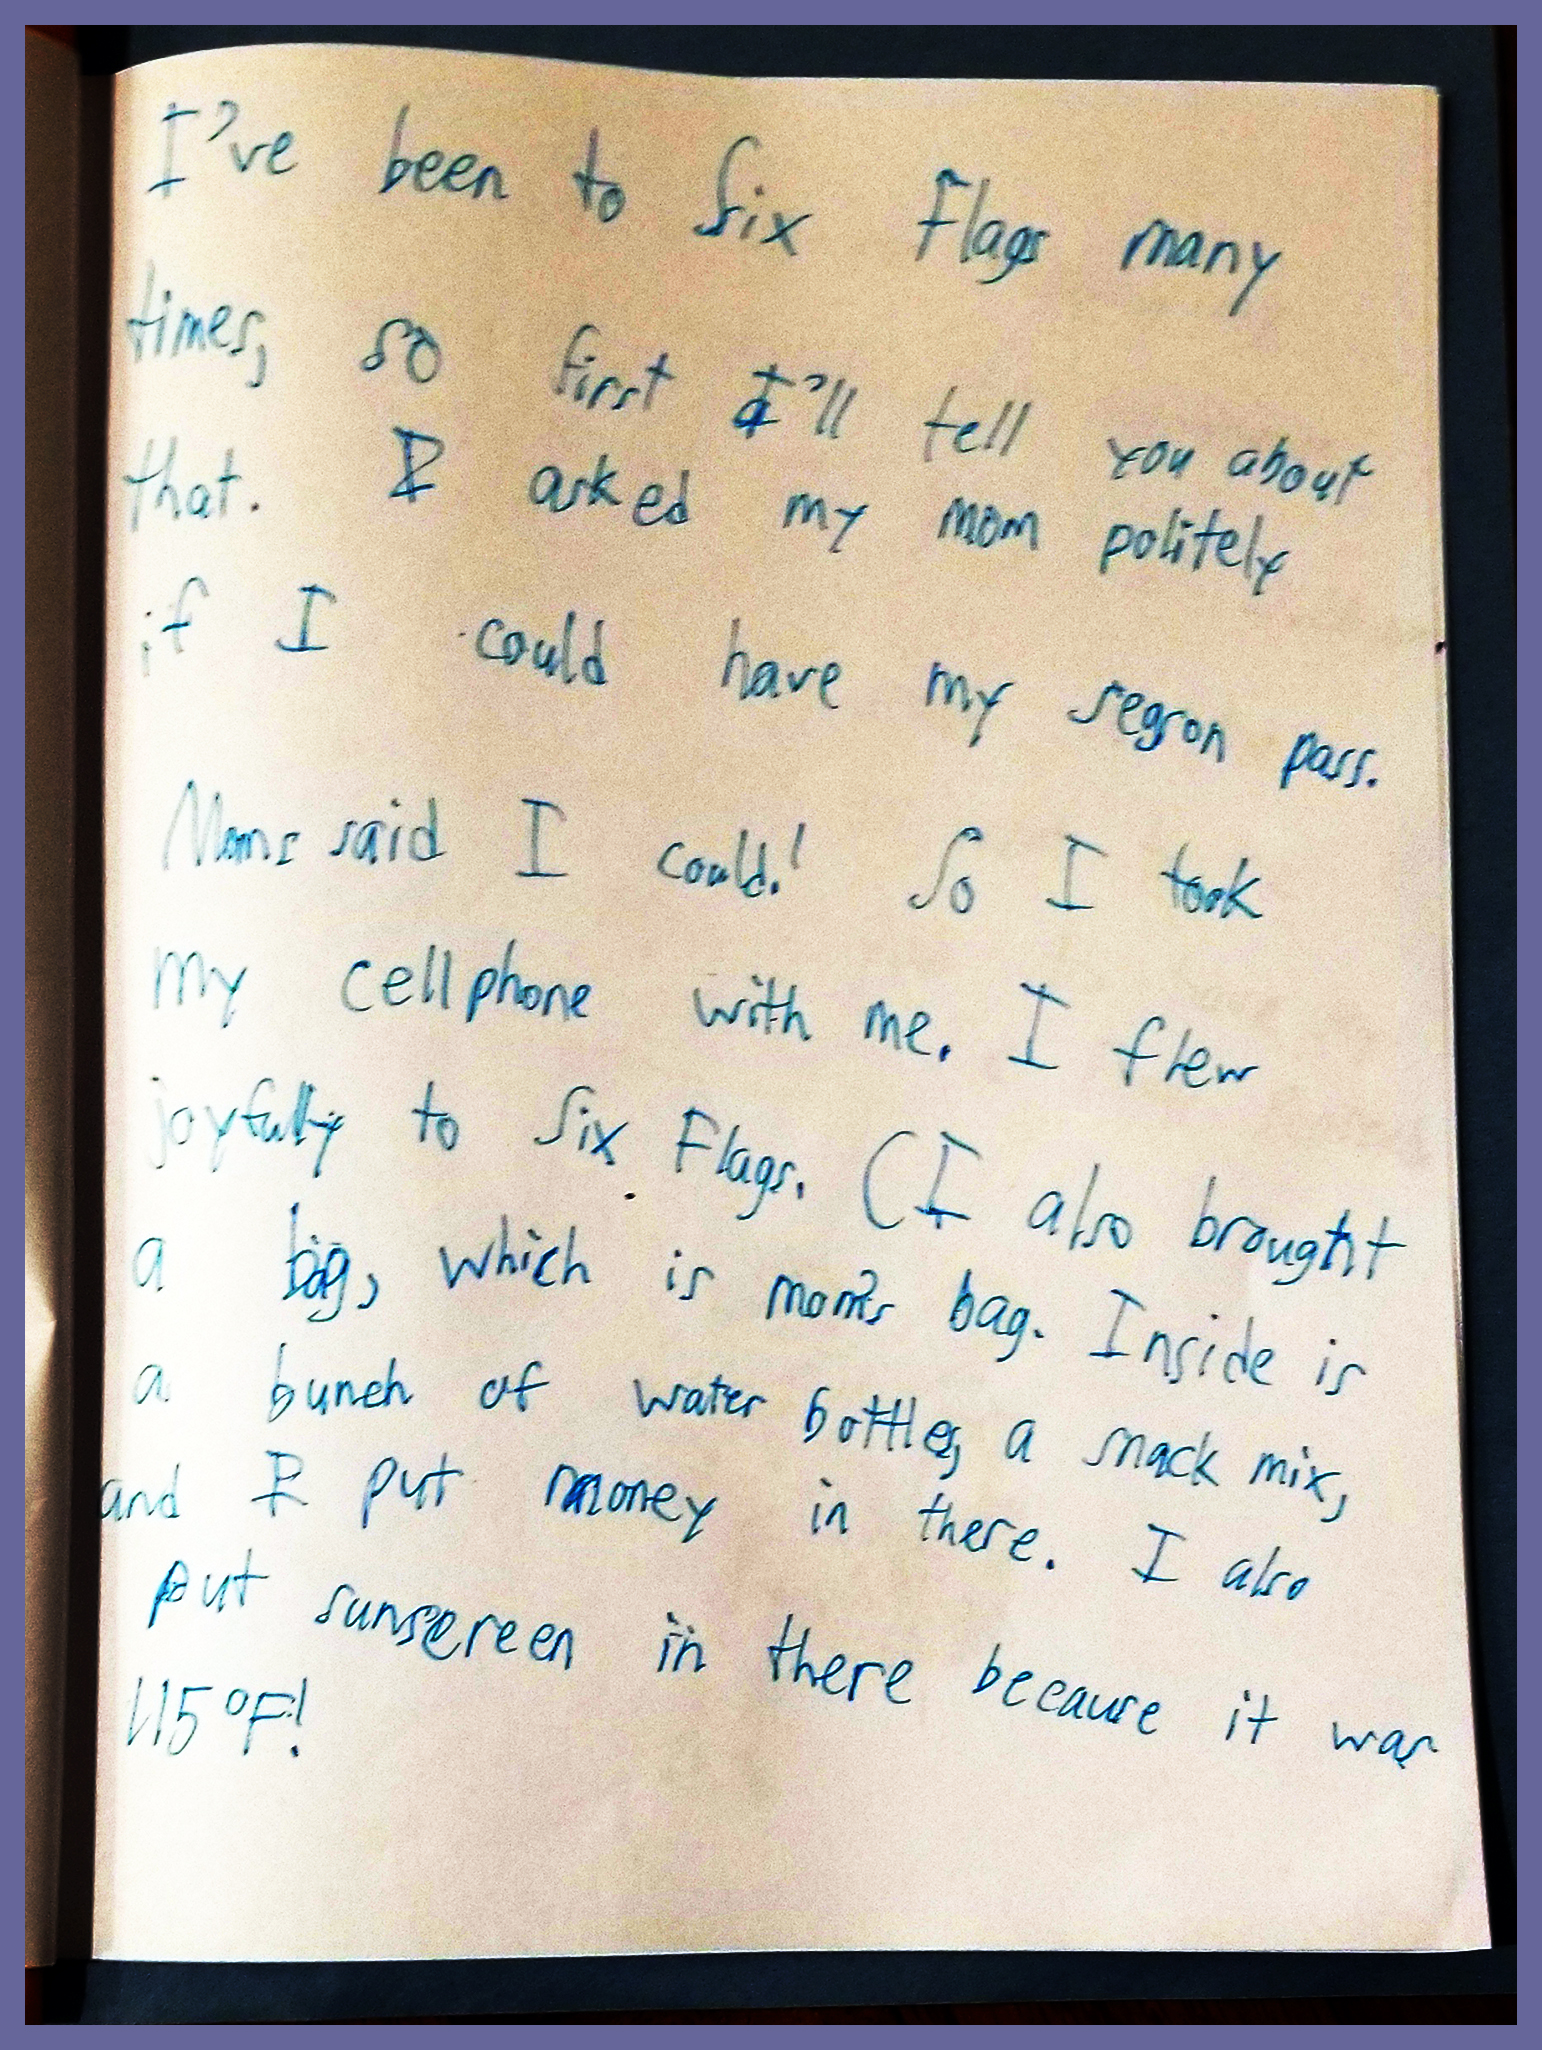 I've been to Six Flags many
times, so first I'll tell you about
that. I asked my mom politely
if I could have my segson pass.
Moms said I could! So I took
my cellphone with me. I flew
joyfully to Six Flags. (I also brought
a bag, which is mom's bag. Inside is
a bunch of water bottles, a snack mix,
and I put money in there. I also
put sunscreen in there because it was
115°F!